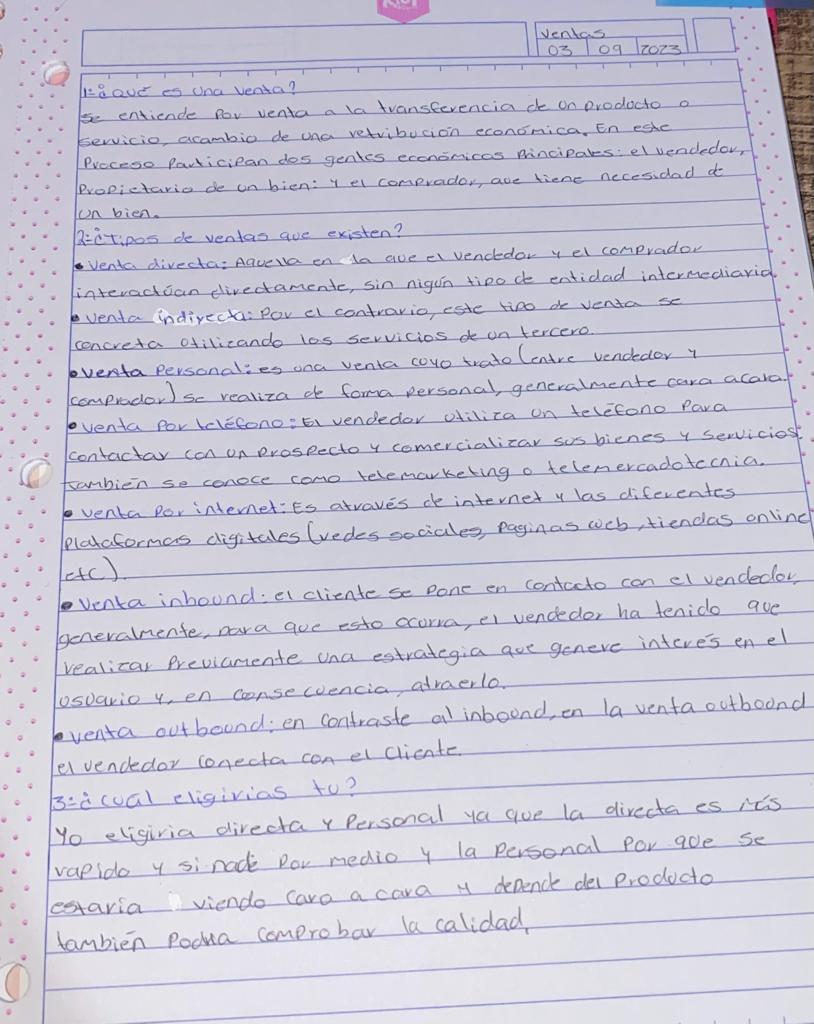 Ventas
03 09 2023
1-¿Qué es una venta?
se entiende por venta a la transferencia de un producto o
servicio, acambio de una retribución económica. En este
Proceso Participan dos gentes económicas Principales: el vendedor,
Propietario de un bien: y el comprador, que tiene necesidad d
un bien.
2-¿Tipos de ventas que existen?
• Venta directa: Aquella en la que el vendedor y el comprador
interactúan directamente, sin nigún tipo de entidad intermediaria.
• venta indirecta: Por el contrario, este tipo de venta se
concreta utilizando los servicios de un tercero.
• venta Personal: es una venta cuyo trato (entre vendedor y
comprador) se realiza de forma personal, generalmente cara acara.
• venta Por teléfono: El vendedor utiliza un teléfono Para
contactar con un Prospecto y comercializar sus bienes y servicios.
también se conoce como telemarketing o telemercadotecnia.
• venta Por internet: Es através de internet y las diferentes
Plataformas digitales (redes sociales, Paginas web, tiendas online
etc).
• Venta inbound: el cliente se pone en contacto con el vendedor,
generalmente, para que esto ocurra, el vendedor ha tenido que
realizar Previamente una estrategia que genere interés en el
usuario y, en consecuencia, atraerlo.
• venta outbound: en contraste al inbound, en la venta outbound
el vendedor conecta con el cliente.
3-¿cuál eligirias tu?
Yo eligiria directa y Personal ya que la directa es más
rapido y si nade Por medio y la Personal Por que se
estaria viendo cara a cara y depende del Producto
también Podria comprobar la calidad.